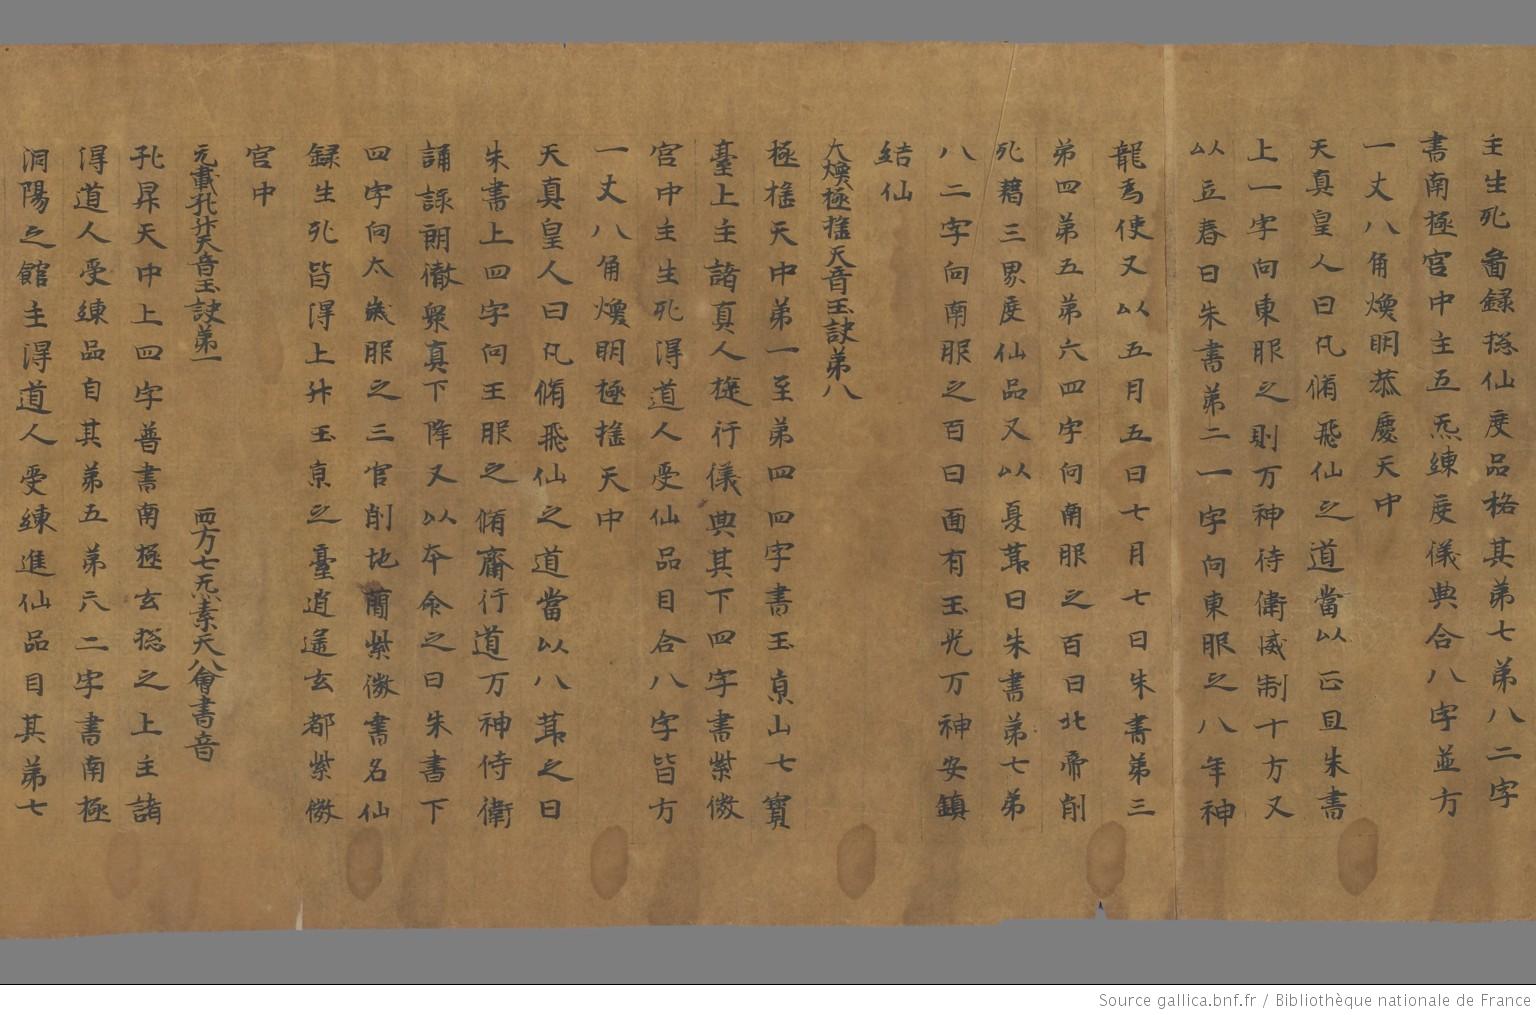 主生死啚録揔仙度品格其第七第八二字
書南極宮中主五炁練度儀典合八字並方
一丈八角煥明恭慶天中
天真皇人曰凡脩飛仙之道當以正旦朱書
上一字向東服之則万神侍衛威制十方又
以立春日朱書第二一字向東服之八年神
龍為使又以五月五日七月七日朱書第三
第四第五第六四字向南服之百日北帝削
死藉三界度仙品又以夏䒶日朱書第七第
八二字向南服之百日面有玉光万神安鎮
結仙
大煥極摇天音玉訣第八
極摇天中第一至第四四字書玉京山七寶
臺上主諸真人遊行儀典其下四字書紫微
宮中主生死得道人受仙品目合八字皆方
一丈八角煥明極摇天中
天真皇人曰凡脩飛仙之道當以八䒶之日
朱書上四字向王服之脩齋行道万神侍衛
誦詠朗徹衆真下降又以本命之日朱書下
四字向太歲服之三官削地蘭紫微書名仙
録生死皆得上升玉京之臺逍遥玄都紫微
宮中
元載孔升天音玉訣第一 西方七炁素天八會書音
孔昇天中上四字普書南極玄揔之上主諸
得道人受練品自其第五第六二字書南極
洞陽之館主得道人受練進仙品目其第七
Source gallica.bnf.fr / Bibliothèque nationale de France